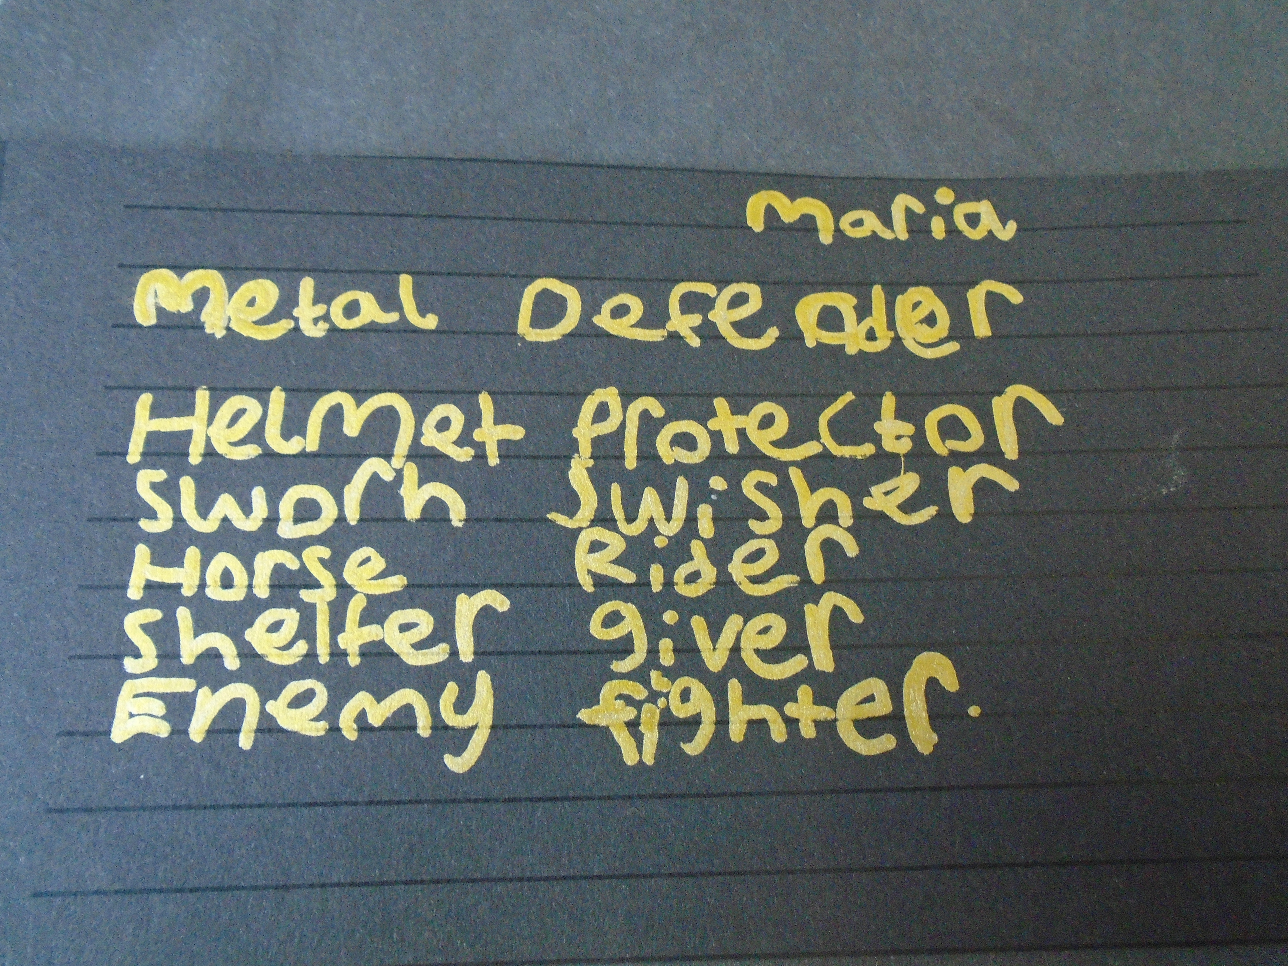 Maria
Metal Defender
Helmet Protector
Sworh Swisher
Horse Rider
Shelter giver
Enemy fighter.